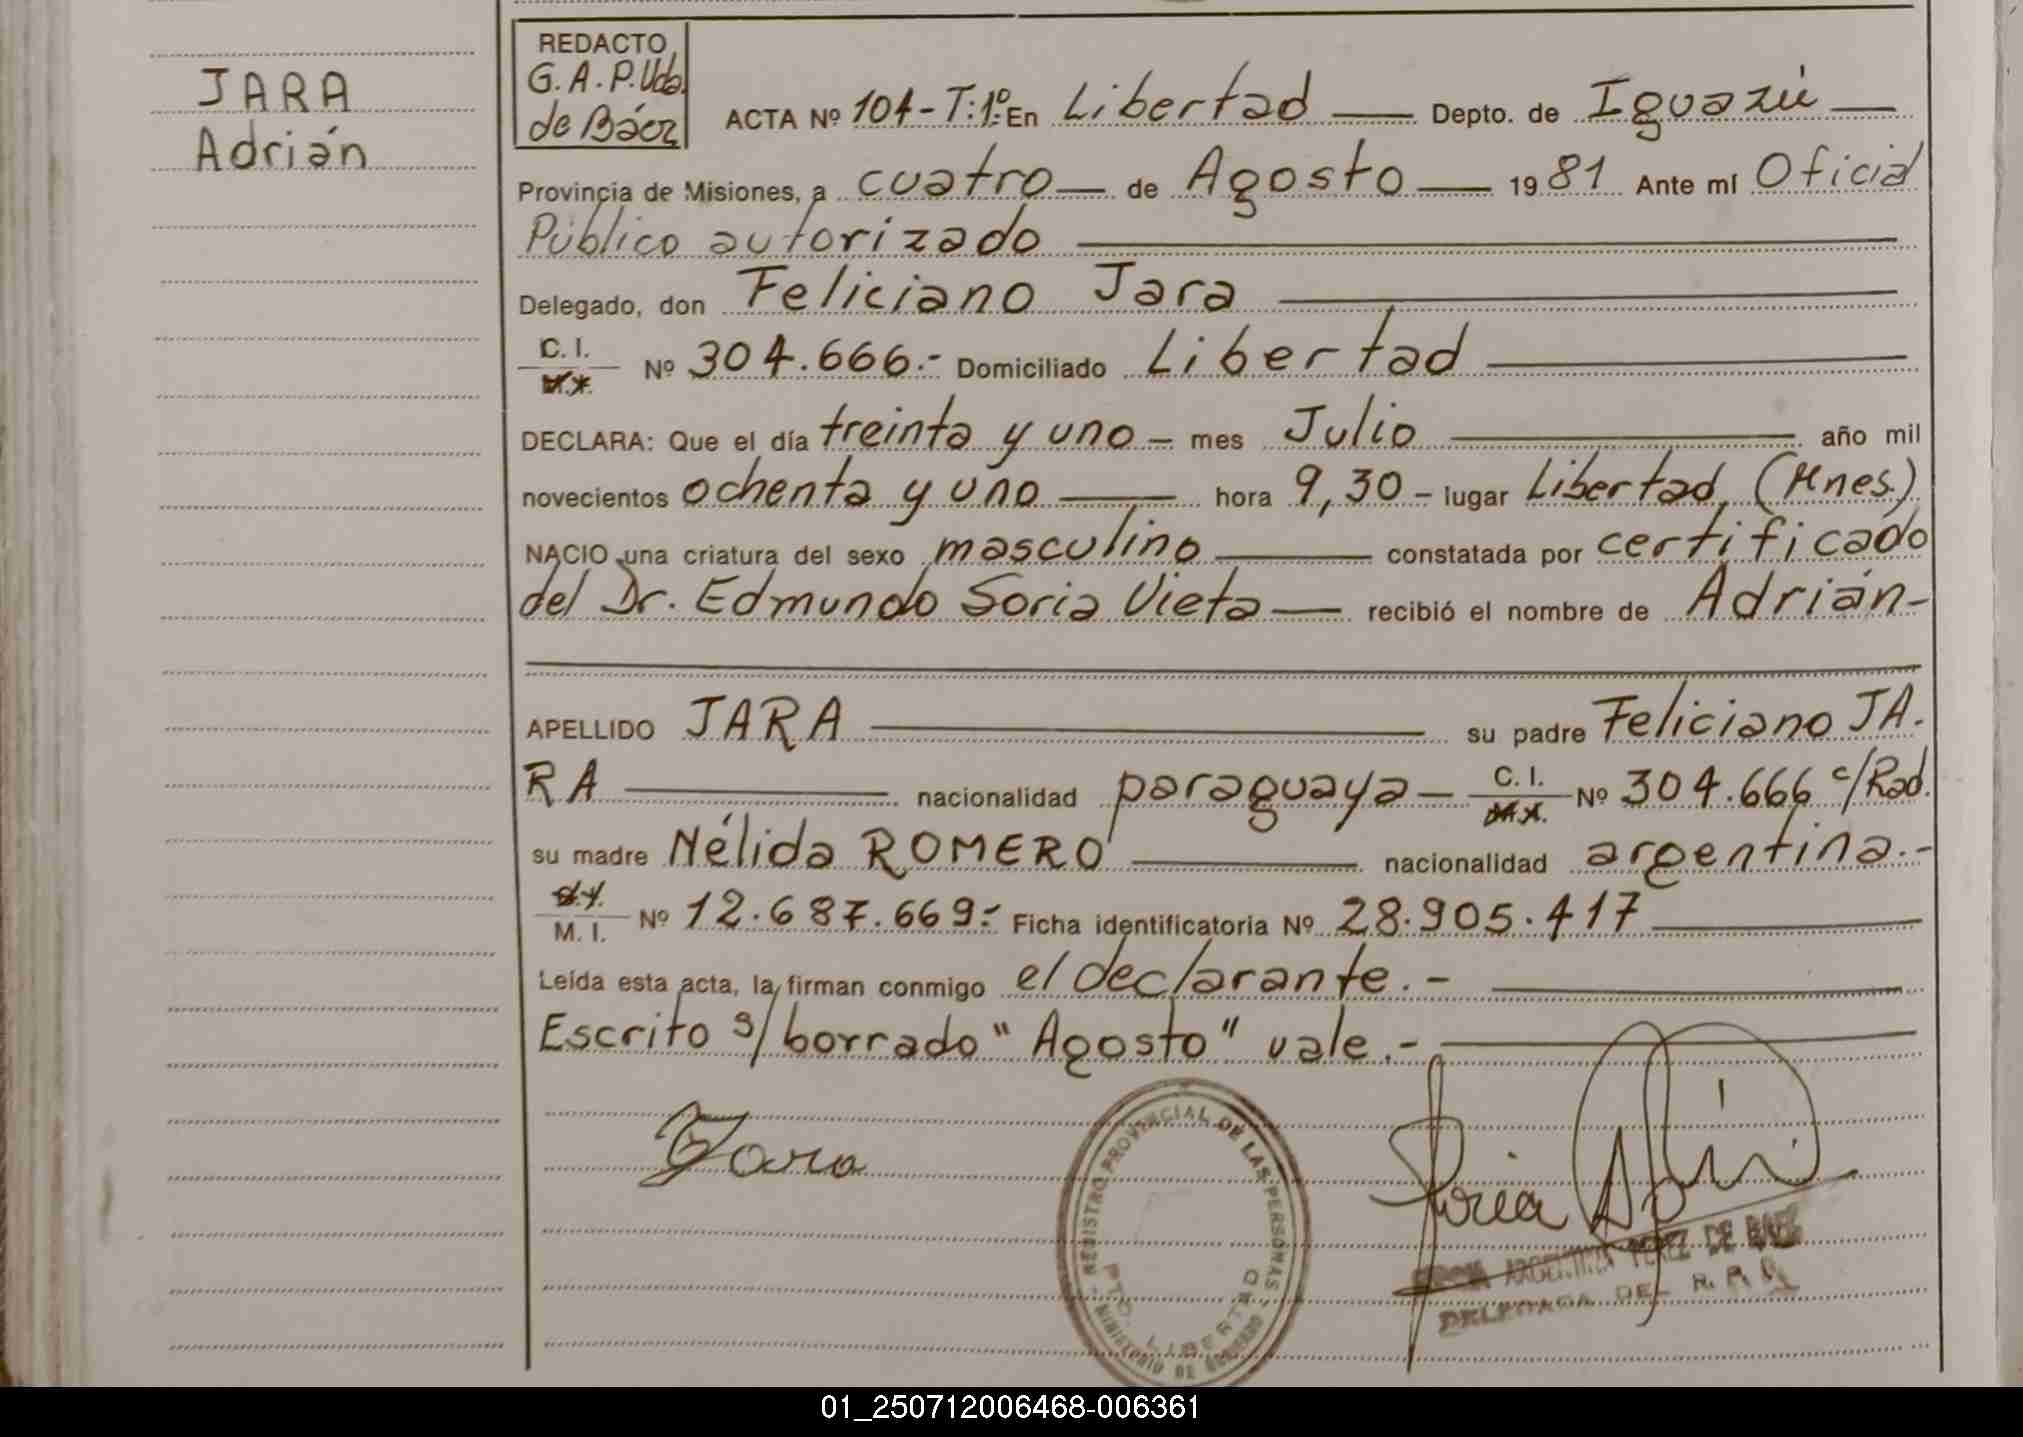 JARA
Adrián
REDACTO
G. A. P. Vda.
de Báez
ACTA Nº 104 - T: 1º: En Libertad Depto. de Iguazú
Provincia de Misiones, a cuatro de Agosto 1981 Ante mí Oficial
Público autorizado
Delegado, don Feliciano Jara
C. I. Nº 304.666.- Domiciliado Libertad
DECLARA: Que el día treinta y uno - mes Julio año mil
novecientos ochenta y uno hora 9,30 - lugar Libertad, (Mnes.)
NACIO una criatura del sexo masculino constatada por certificado
del Dr. Edmundo Soria Vieta recibió el nombre de Adrián-
APELLIDO JARA su padre Feliciano JA-
RA nacionalidad paraguaya - C. I. Nº 304.666 c/Rad.
su madre Nélida ROMERO nacionalidad argentina.-
M. I. Nº 12.687.669.- Ficha identificatoria Nº 28.905.417
Leída esta acta, la firman conmigo el declarante.-
Escrito s/borrado "Agosto" vale.-
Jara
REGISTRO PROVINCIAL DE LAS PERSONAS
MINISTERIO DE GOBIERNO
PTO. LIBERTAD
ARGENTINA PEREZ DE BAEZ
DELEGADA DEL R. P. P.
01_250712006468-006361